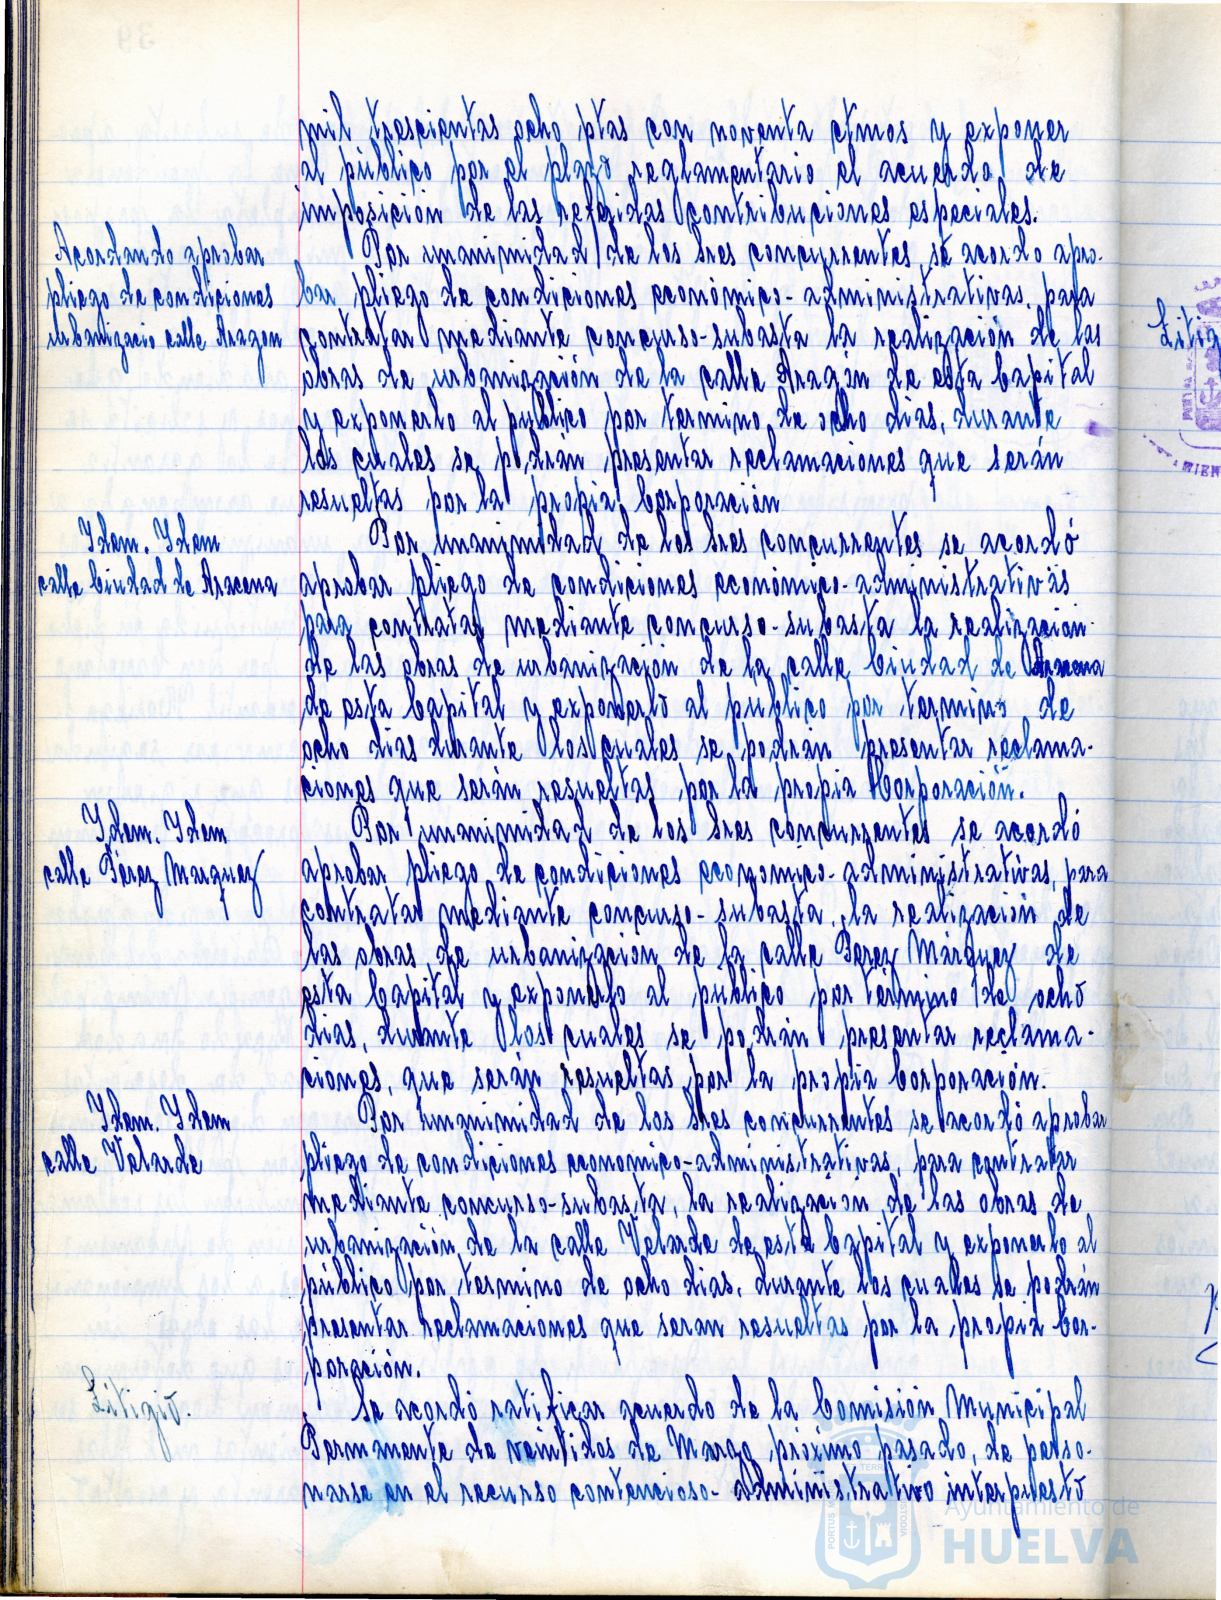 mil trescientas ocho ptas con noventa ctmos y exponer
al público por el plazo reglamentario el acuerdo de
imposición de las referidas contribuciones especiales.
Acordando aprobar
pliego de condiciones
urbanizacio calle Aragon
Por unanimidad de los Sres concurrentes se acordo apro-
bar pliego de condiciones económico-administrativas, para
contratar mediante concurso-subasta la realización de las
obras de urbanización de la calle Aragón de esta Capital
y exponerlo al publico por termino de ocho dias, durante
los cuales se podrán presentar reclamaciones que serán
resueltas por la propia Corporación
Idem. Idem
calle Ciudad de Aracena
Por unanimidad de los Sres concurrentes se acordó
aprobar pliego de condiciones económico-administrativas
para contratar mediante concurso-subasta la realizacion
de las obras de urbanización de la calle Ciudad de Aracena
de esta Capital y exponerlo al publico por termino de
ocho dias durante los cuales se podrán presentar reclama-
ciones que serán resueltas por la propia Corporación.
Idem. Idem
calle Pérez Marquez
Por unanimidad de los Sres concurrentes se acordó
aprobar pliego de condiciones economico-administrativas, para
contratar mediante concurso-subasta, la realización de
las obras de urbanizacion de la calle Perez Márquez de
esta Capital y exponerlo al publico por término de ocho
dias, durante los cuales se podrán presentar reclama-
ciones, que serán resueltas por la propia Corporación.
Idem. Idem
calle Velarde
Por unanimidad de los Sres concurrentes se acordó aprobar
pliego de condiciones economico-administrativas, para contratar
mediante concurso-subasta, la realización de las obras de
urbanización de la calle Velarde de esta Capital y exponerlo al
público por termino de ocho dias, durante los cuales se podrán
presentar reclamaciones que seran resueltas por la propia Cor-
poración.
Litigio.
Se acordó ratificar acuerdo de la Comisión Municipal
Permanente de veintidos de Marzo próximo pasado, de perso-
narse en el recurso contencioso-administrativo interpuesto
Ayuntamiento de
HUELVA